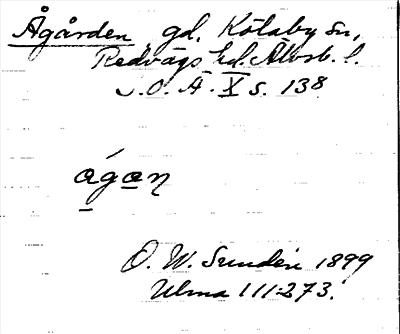 Ågården gd. Kölaby sn,
Redvägs hd. Älvsb. l.
S. O. Ä. X s. 138
ágaŋ
O. W. Sundén 1899
Ulma 111:273.